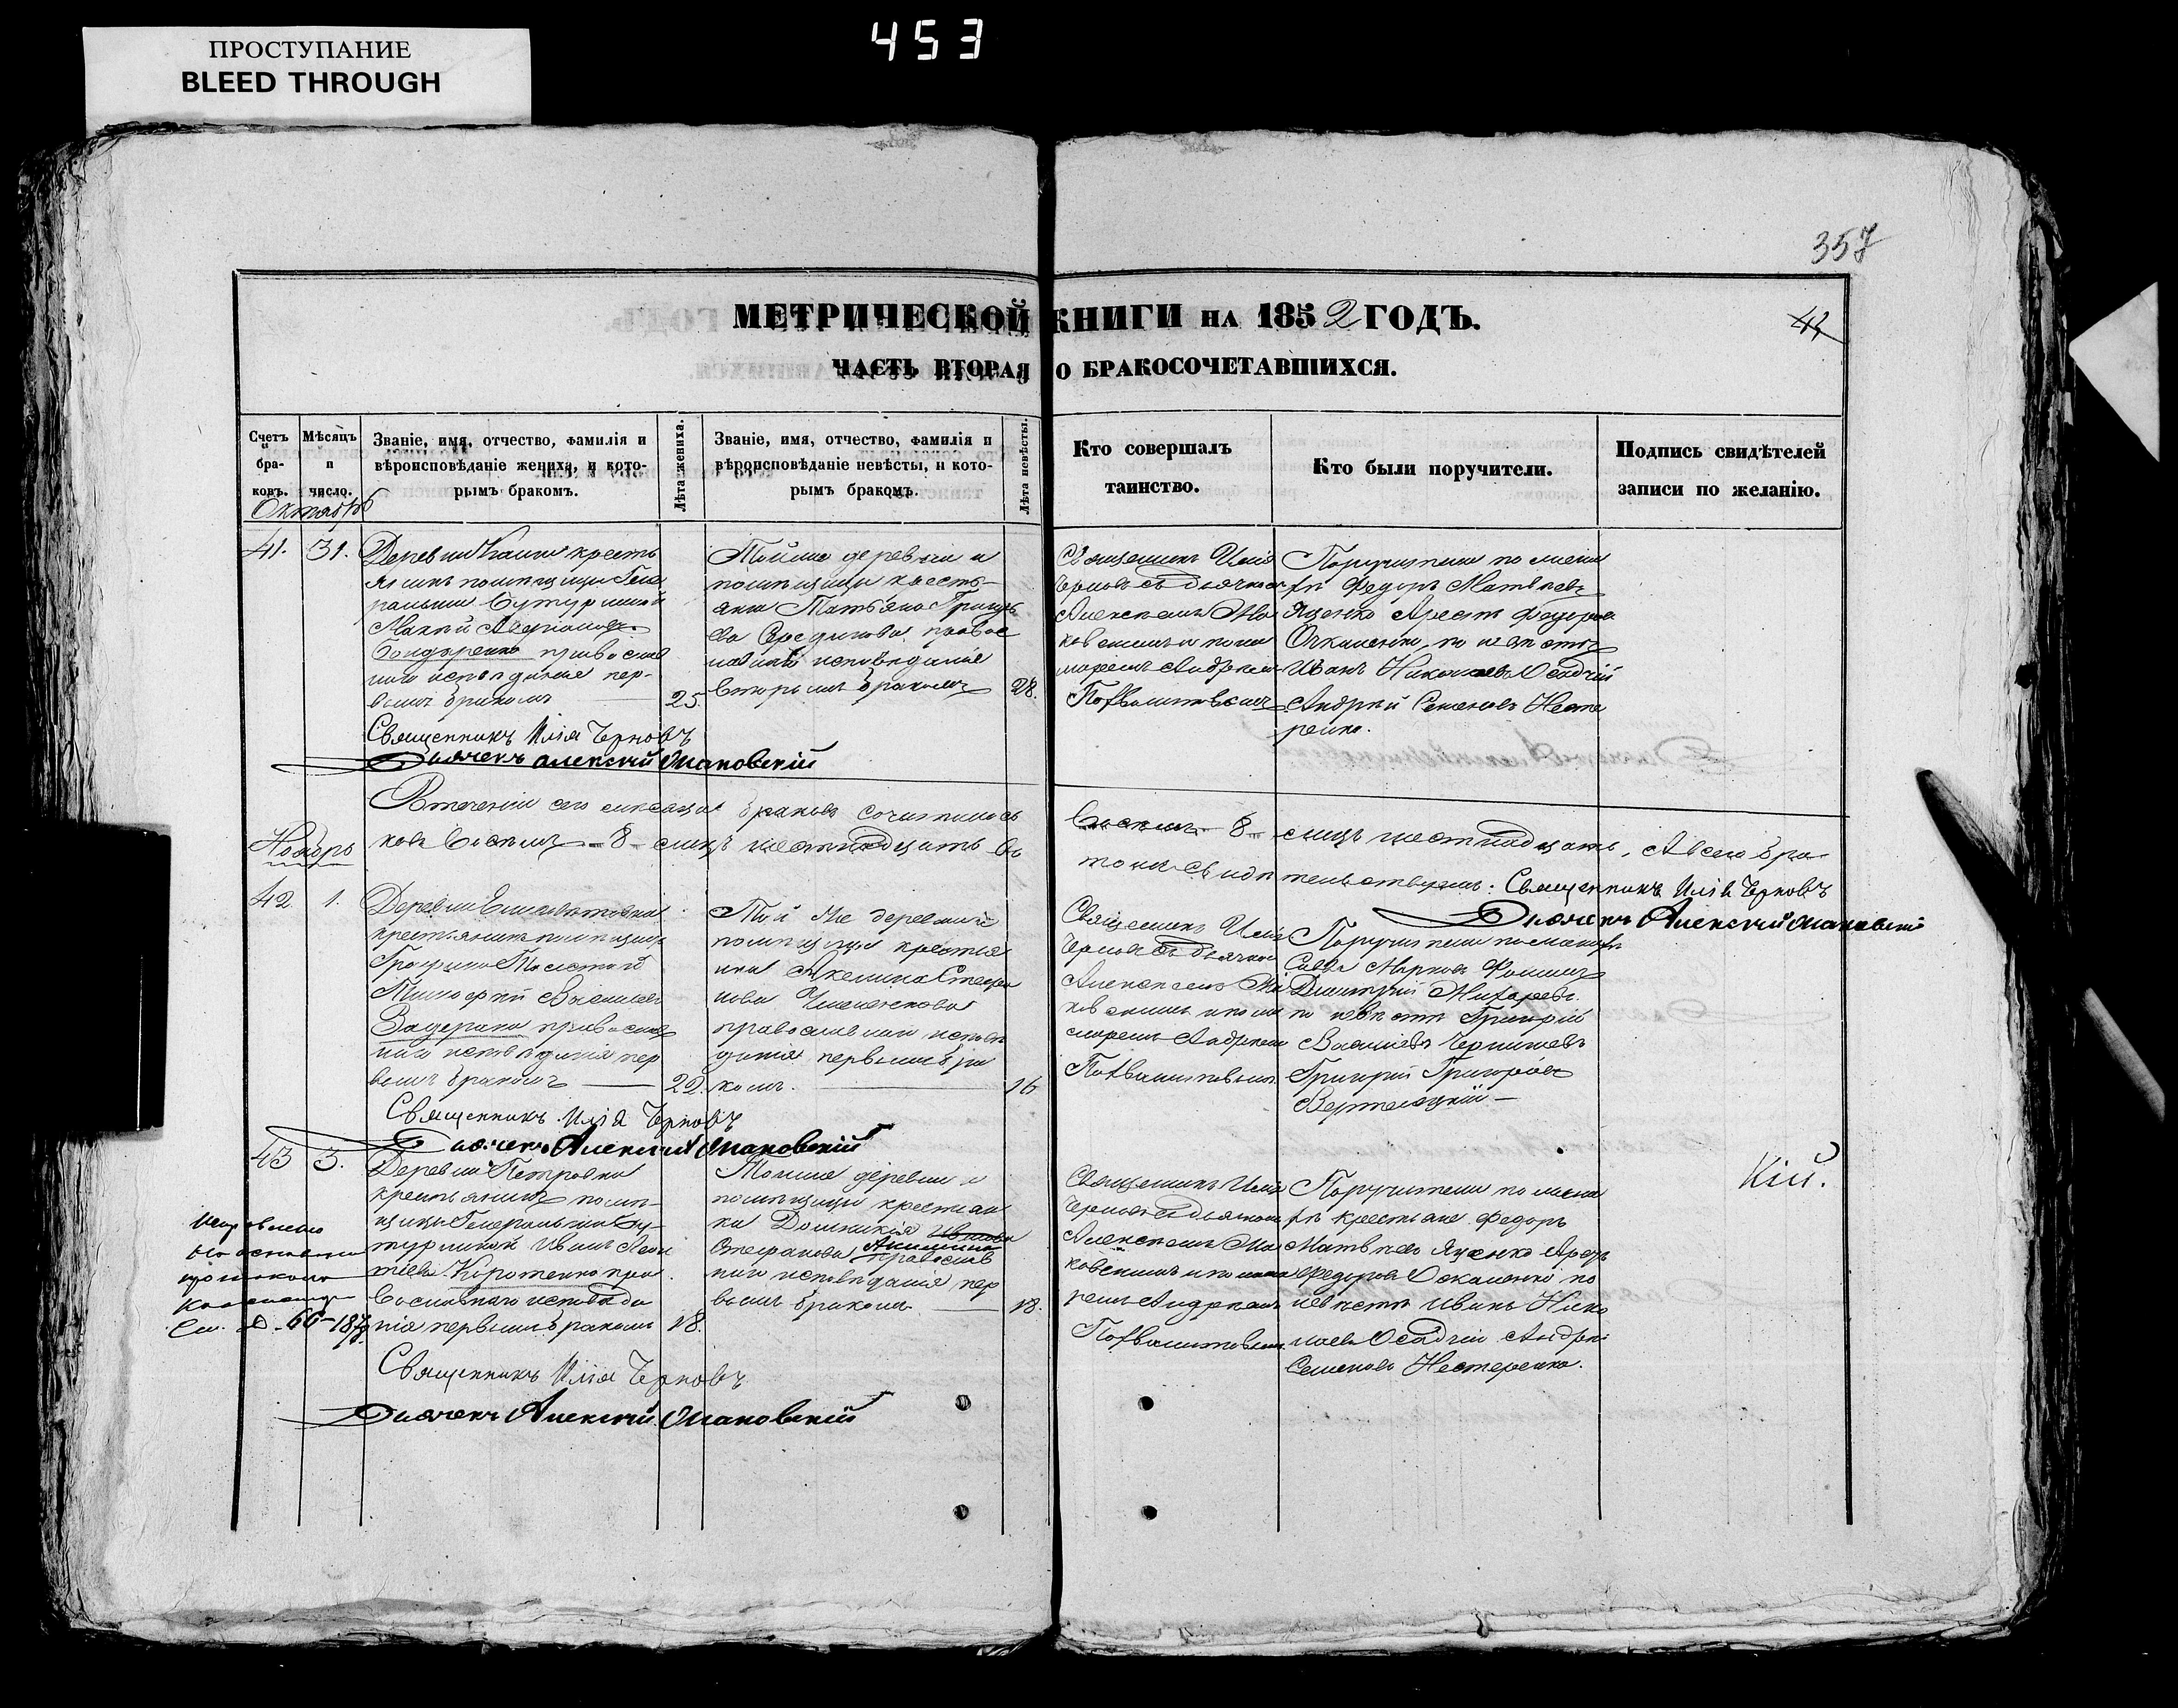 ПРОСТУПАНИЕ
BLEED THROUGH
453
357
МЕТРИЧЕСКОЙ КНИГИ НА 1852 ГОДЪ.
ЧАСТЬ ВТОРАЯ О БРАКОСОЧЕТАВШИХСЯ.
Счетъ бра-ковъ.
Мѣсяцъ и число.
Званіе, имя, отчество, фамилія и
вѣроисповѣданіе жениха, и кото-
рымъ бракомъ.
Лѣта жениха.
Званіе, имя, отчество, фамилія и
вѣроисповѣданіе невѣсты, и кото-
рымъ бракомъ.
Лѣта невѣсты.
Кто совершалъ
таинство.
Кто были поручители.
Подпись свидѣтелей
записи по желанію.
Октябрь
41. 31.
Деревни кресть
янинъ помѣщицы Гене
ральши Бутурлиной
Макѣй
Бондаренко православ
наго исповѣданія пер-
вымъ бракомъ
25.
Тойже деревни и
помѣщицы кресть-
янка Татьяна Григорь
ева православ
наго исповѣданія
вторымъ бракомъ
28.
Священникъ Илія
Черновъ съ дьячкомъ
Алексѣемъ Ма
ковскимъ и поно
маремъ Андреемъ
Похвалитовымъ
Поручители по жени
хѣ Федоръ Матвѣевъ
Яценко Федоровъ
по невѣстѣ
Иванъ Николаевъ Осадчій
Андрей Семеновъ Несте
ренко.
Священникъ Илія Черновъ
Дьячекъ Алексѣй Маковскій
Въ теченіи сего мѣсяца браковъ сочиталось
восемь - 8 - лицъ шестнадцать, А всего бра-
ковъ восемь - 8 - лицъ шестнадцать въ
томъ свидѣтельствуемъ: Священникъ Илія Черновъ
Дьячекъ Алексѣй Маковскій
Ноябрь
42. 1.
Деревни Елисаветовки
крестьянинъ помѣщицы
Графини Толстой
Тимофѣй Васильевъ
православ
наго исповѣданія пер
вымъ бракомъ
22.
Той же деревни и
помѣщицы крестья
нка Акелина Стефа
нова
православнаго исповѣ
данія первымъ бра
комъ.
16
Священникъ Илія
Черновъ съ дьячкомъ
Алексѣемъ Ма
ковскимъ и поно
маремъ Андреемъ
Похвалитовымъ
Поручители по женихѣ
Савва Марковъ
Дмитрій
по невѣстѣ Григорій
Васильевъ
Григорій Григорьевъ
Вертелецкій
Священникъ Илія Черновъ
Дьячекъ Алексѣй Маковскій
43 3.
Деревни Петровки
крестьянинъ помѣ-
щицы Генеральши Бу-
турлиной Иванъ Леон
тіевъ Коротенко пра
вославнаго исповѣда
нія первымъ бракомъ
18.
Тойже деревни и
помѣщицы крестьян
ка Домникія
Стефанова
православ
наго исповѣданія пер
вымъ бракомъ
18.
Священникъ Илія
Черновъ съ дьячкомъ
Алексѣемъ Ма
ковскимъ и понома
ремъ Андреемъ
Похвалитовымъ
Поручители по жени
хѣ крестьяне Федоръ
Матвѣевъ Яценко
Федоровъ по
невѣстѣ Иванъ Нико
лаевъ Осадчій Андрей
Семеновъ Нестеренко.
Кій.
Исправлено
на основаніи
протокола
Священникъ Илія Черновъ
Дьячекъ Алексѣй Маковскій